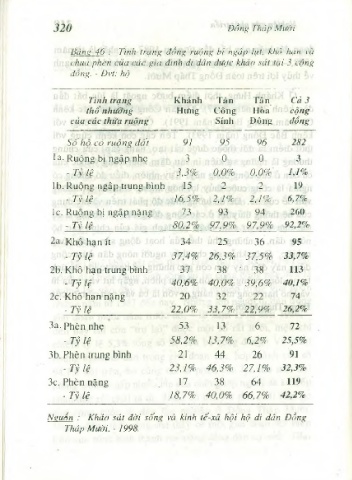 320 Đồng Tháp Mười
Bảng 46 : Tình trạng đồng ruộng bị ngập lụt, khô hạn và
chua phèn của các gia đình di dân được khảo sát tại 3 cộng
đồng. - Đvt: hộ
Tình trạng Khánh Tân Tân Cả 3
thổ nhưỡng Hưng Công Hòa cộng
của các thửa ruộng Sính Đông đồng
Số hộ có ruộng đất 91 95 96 282
1a. Ruộng bị ngập nhẹ 3 0 0 3
- Tỷ lệ 3,3% 0,0% 0,0% 1,1%
1b. Ruộng ngập trung bình 15 2 2 19
- Tỷ lệ 16,5% 2,1% 2,1% 6,7%
1c. Ruộng bị ngập nặng 73 93 94 260
- Tỷ lệ 80,2% 97,9% 97,9% 92,2%
2a. Khô hạn ít 34 25 36 95
- Tỷ lệ 37,4% 26,3% 37,5% 33,7%
2b. Khô hạn trung bình 37 38 38 113
- Tỷ lệ 40,6% 40,0% 39,6% 40,1%
2c. Khô hạn nặng 20 32 22 74
- Tỷ lệ 22,0% 33,7% 22,9% 26,2%
3a. Phèn nhẹ 53 13 6 72
- Tỷ lệ 58,2% 13,7% 6,2% 25,5%
3b. Phèn trung bình 21 44 26 91
- Tỷ lệ 23,1% 46,3% 27,1% 32,3%
3c. Phèn nặng 17 38 64 119
- Tỷ lệ 18,7% 40,0% 66,7% 42,2%
Nguồn : Khảo sát đời sống và kinh tế-xã hội hộ di dân Đồng
Tháp Mười. - 1998.